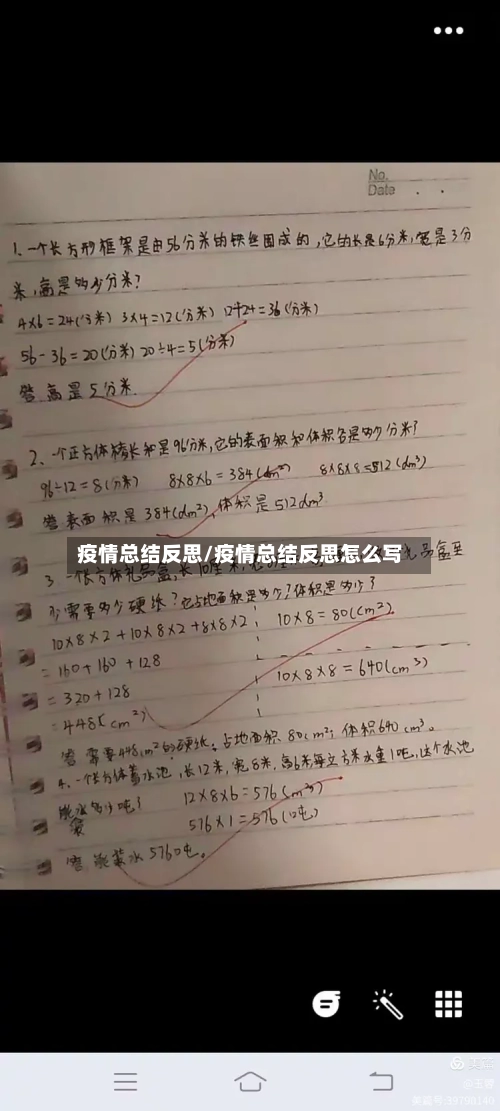 No.
Date . .
1.一个长方形框架是由56分米的铁丝围成的,它的长是6分米,宽是3分
米,高是多少分米?
4×6=24(分米) 3×4=12(分米) 12+24=36(分米)
56-36=20(分米) 20÷4=5(分米)
答 高是5分米.
2、一个正方体棱长和是96分米,它的表面积和体积各是多少分米?
96÷12=8(分米) 8×8×6=384(dm²) 8×8×8=512(dm³)
答 表面积是384(dm²),体积是512dm³
疫情总结反思/疫情总结反思怎么写
3 一个长方体礼品盒,长10厘米 品盒至
少需要多少硬纸?它占地面积是多少?体积是多少?
10×8×2+10×8×2+8×8×2 10×8=80(cm²).
=160+160+128
10×8×8=640(cm³)
=320+128
=448(cm²)
答 需要448cm²的硬纸。占地面积80cm²,体积640cm³。
4.一个长方体蓄水池,长12米,宽8米,高6米每立方米水重1吨,这个水池
能水多少吨? 12×8×6=576(m³)
装
576×1=576(吨)
答 能装水576吨。
美篇
@玉婷
美篇号:39790140